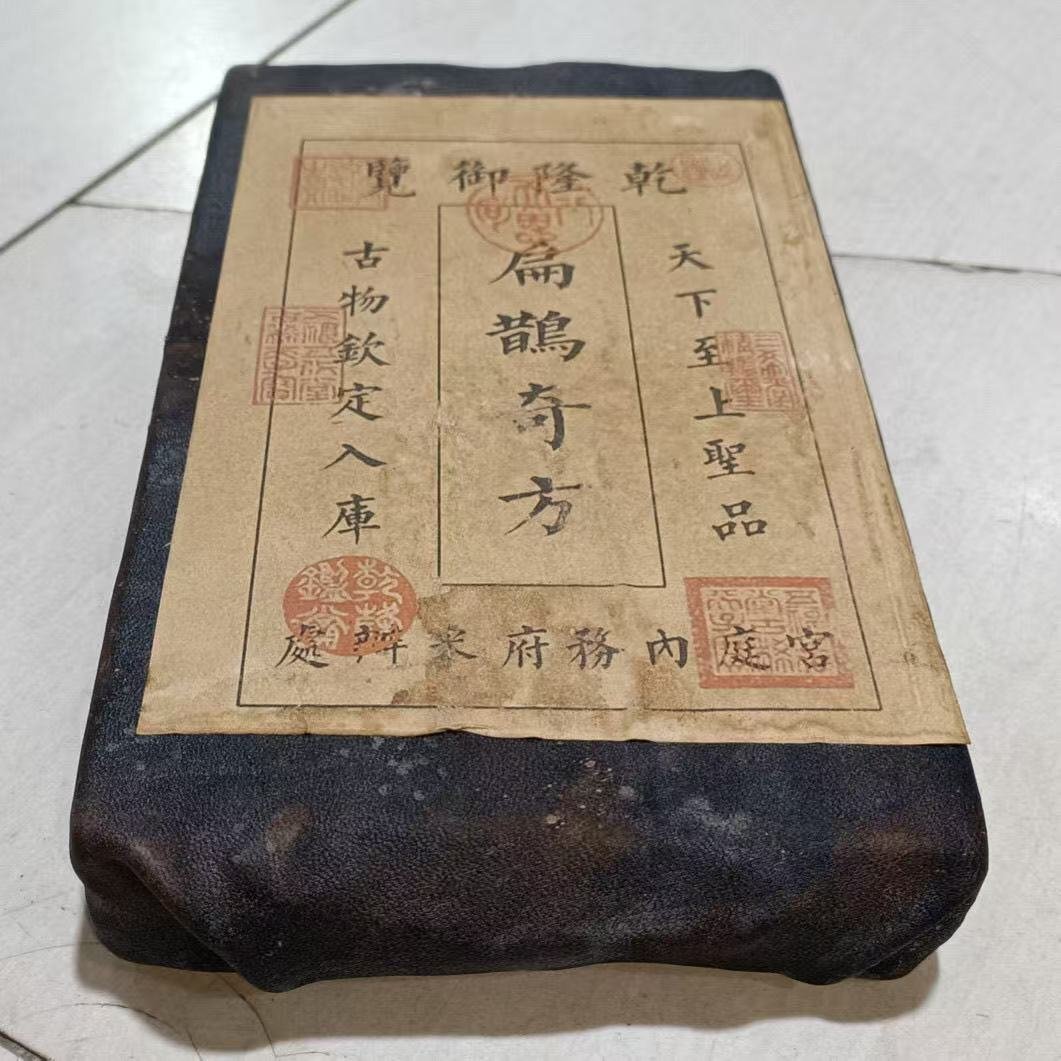 乾隆御覽
天下至上聖品
扁鵲奇方
古物欽定入庫
宮庭內務府采辦處
乾隆鑑賞